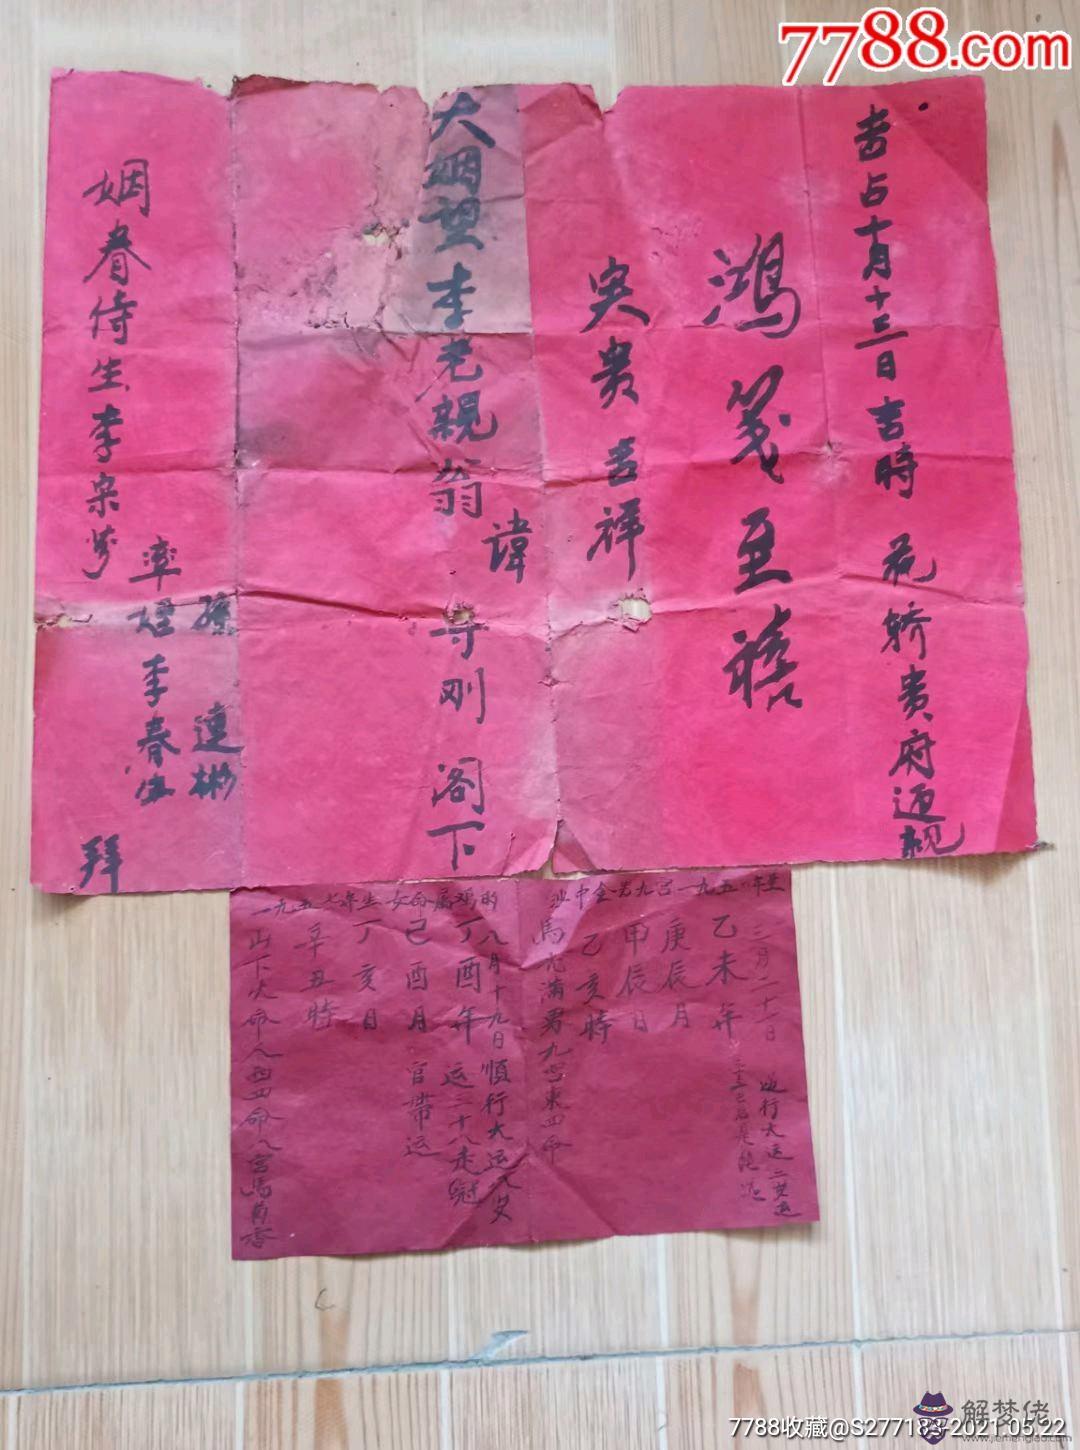 7788.com
吉占十月十三日吉時 花轿贵府迎親
鴻箋至禧
奕贵吉祥
大姻望李老親翁諱守刚 阁下
姻眷侍生李宗
率侄李春
孫連彬
拜
一九五七年生女命属鸡的
沙中金男九宫一九五 年生
三月二十一日 逆行大运二岁运
乙未年
庚辰月
甲辰日
乙亥時
馬 满男九宫東四命
八月十九日順行大运八岁
丁酉年 运二十八走冠
己酉月 官带运
丁亥日
辛丑時
山下火命人西四命八宫馬
7788收藏@S277183 2021.05.22
解梦佬
www.jiemenglao.com